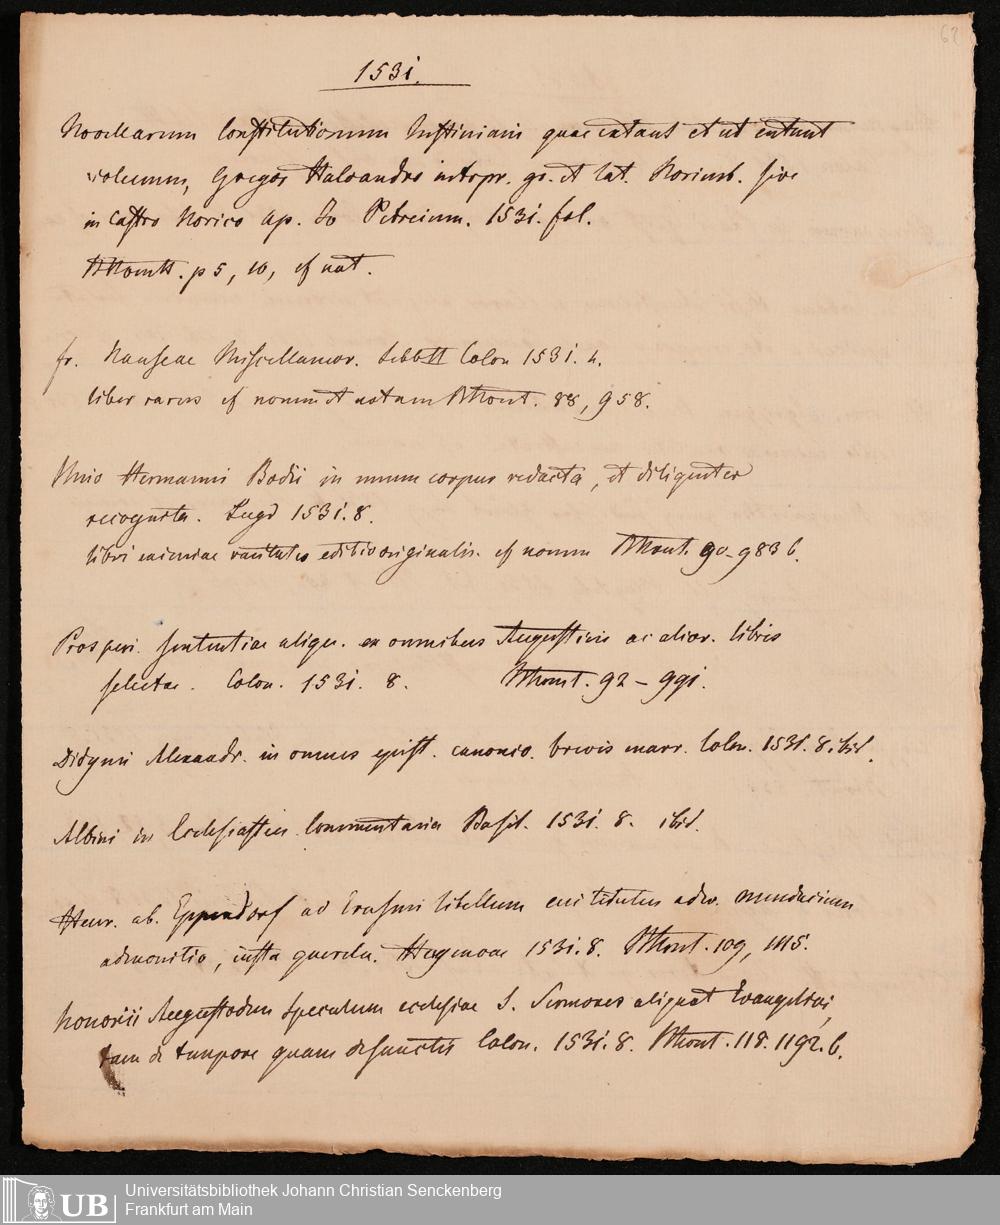 62
1531.
Novellarum Constitutionum Justiniani quae extant et ut extant
volumen, Gregor Haloandro interpr. gr. et lat. Norimb. sive
in castro Norico ap. Jo Petreium. 1531. fol.
p 5, 10, cf not.
fr. Nauseae Miscellaneor. Colon 1531. 4.
liber rarus cf nomen et notam BMont. 88, 958.
Unio Hermanni Bodii in unum corpus redacta, et diligenter
recognita. Lugd 1531. 8.
libri eximiae raritatis editio originalis. cf nomen BMont. 90-983 b.
Prosperi sententiae aliqu. ex omnibus Augustini ac alior. libris
selectae. Colon. 1531. 8. BMont. 92-991.
Didymi Alexandr. in omnes epist. canonic. brevis enarr. Colon. 1531. 8. ibid.
Albini in Ecclesiasten Commentaria Basil. 1531. 8. ibid.
Henr. ab. Eppendorf ad Erasmi libellum cui titulus adv. mendacium
admonitio, iusta querela. Hagenoae 1531. 8. BMont. 109, 1115.
Honorii Augustodun speculum ecclesiae S. Sermones aliquot Evangelici,
tam de tempore quam de sanctis Colon. 1531. 8. BMont. 118. 1192. b.
UB
Universitätsbibliothek Johann Christian Senckenberg
Frankfurt am Main